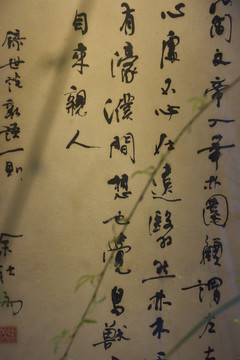 簡文帝入華林園顧謂左右
心處不必在遠翳然林木
有濠濮間想也覺鳥獸
自來親人
錄世說新語一則